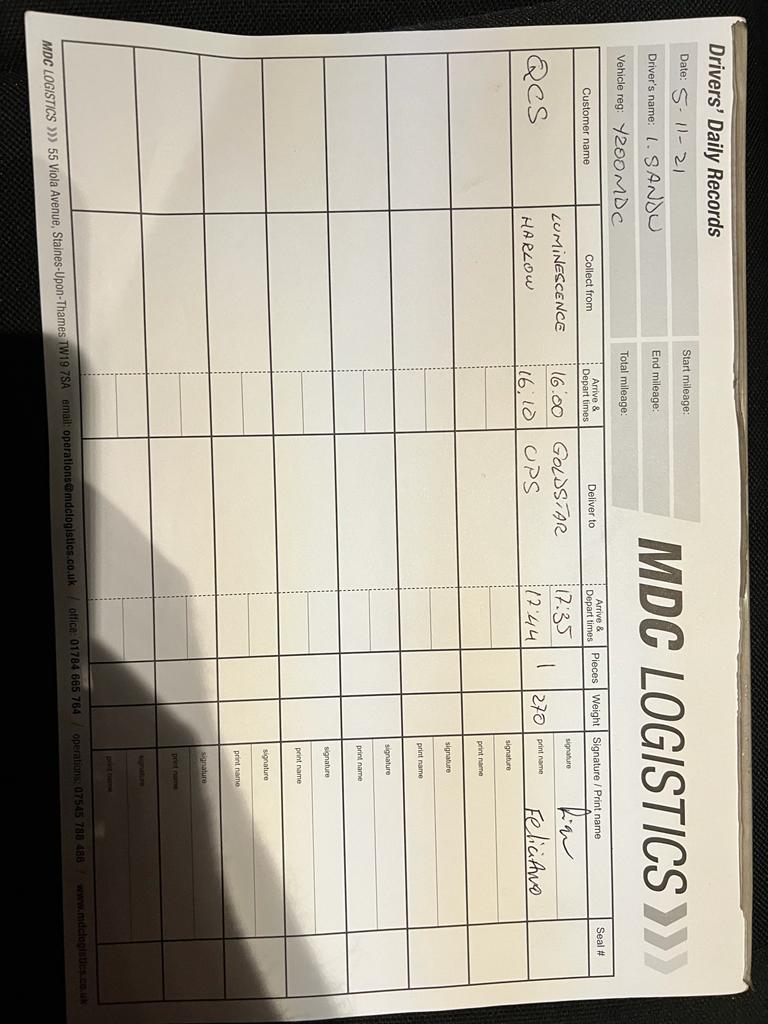 Drivers' Daily Records
Date: 5-11-21
Start mileage:
Driver's name: I. SANDU
End mileage:
Vehicle reg: Y200MDC
Total mileage:
MDC LOGISTICS
Customer name Collect from Arrive & Depart times Deliver to Arrive & Depart times Pieces Weight Signature / Print name Seal #
LUMINESCENCE 16:00 GOLDSTAR 17:35 signature
QCS HARLOW 16:10 UPS 17:44 1 270 print name FELICIANO
signature
print name
signature
print name
signature
print name
signature
print name
signature
print name
signature
print name
signature
print name
MDC LOGISTICS >>> 55 Viola Avenue, Staines-Upon-Thames TW19 7SA email: operations@mdclogistics.co.uk / office: 01784 665 764 / operations: 07545 788 486 / www.mdclogistics.co.uk